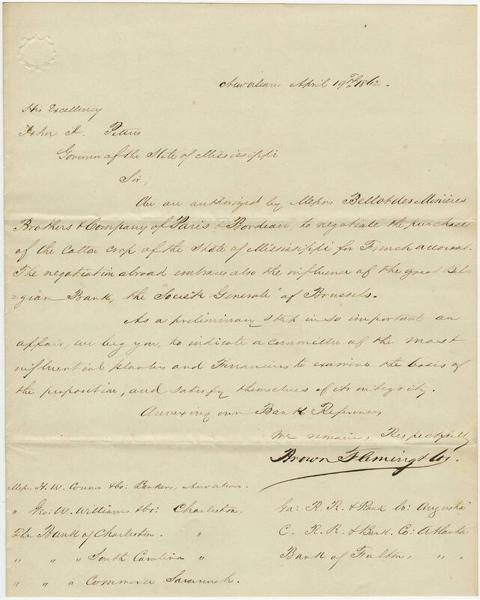 New Orleans April 19th 1862.
His Excellency
John J. Pettus
Governor of the State of Mississippi
Sir;
We are authorized by Messrs Bellot des Minières
Brothers & Company of Paris & Bordeaux, to negotiate the purchase
of the cotton crop of the State of Mississippi for French account.
The negotiation abroad embraces also the influence of the great Bel-
-gian Bank, the "Societé Generale" of Brussels.
As a preliminary step in so important an
affair, we beg you, to indicate a committee of the most
influential planters and Financiers to examine the basis of
the proposition, and satisfy themselves of its integrity.
Annexing our Bank References
We remain, Respectfully
Brown Fleming & Co.
Messrs. H. W. Conner & Co: Bankers, New Orleans.
" Geo: W. Williams & Co: Charleston
The Bank of Charleston. "
" " " South Carolina "
" " " Commerce Savannah.
Ga: R. R. & Bank Co: Augusta
C. R. R. & Bank. Co: Atlanta
Bank of Fulton, " "